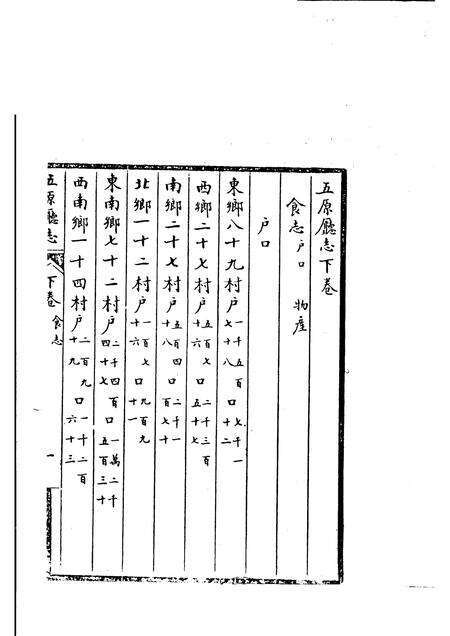 五原廳志下卷
食志 戶口 物產
戶口
東鄉八十九村戶一千五百七十八口七千一十二
西鄉二十七村戶五百七十六口二千三百五十七
南鄉二十七村戶五百四十八口二千一百七十
北鄉一十二村戶一百七十六口九百九十一
東南鄉七十二村戶二千四百四十七口一萬二千五百三十
西南鄉一十四村戶二百九十九口一千二百六十三
五原廳志 下卷 食志 一